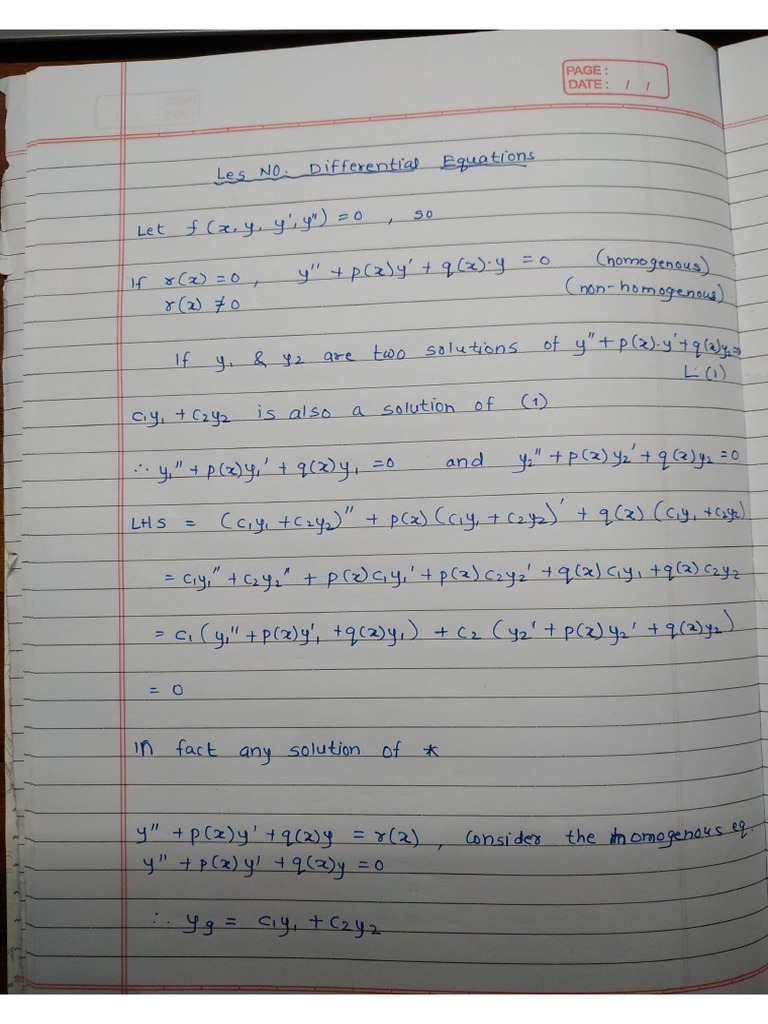 PAGE:
DATE: / /
Les NO. Differential Equations
Let f(x, y, y', y") = 0 , so
If r(x) = 0 , y'' + p(x)y' + q(x)·y = 0 (homogenous)
r(x) ≠ 0 (non-homogenous)
If y₁ & y₂ are two solutions of y" + p(x)·y' + q(x)y₂=
L·(1)
c₁y₁ + c₂y₂ is also a solution of (1)
∴ y₁'' + p(x)y₁' + q(x)y₁ = 0 and y₂'' + p(x)y₂' + q(x)y₂ = 0
LHS = (c₁y₁ + c₂y₂)'' + p(x) (c₁y₁ + c₂y₂)' + q(x) (c₁y₁ + c₂y₂)
= c₁y₁'' + c₂y₂'' + p(x)c₁y₁' + p(x)c₂y₂' + q(x)c₁y₁ + q(x)c₂y₂
= c₁(y₁'' + p(x)y'₁ + q(x)y₁) + c₂ (y₂' + p(x)y₂' + q(x)y₂)
= 0
In fact any solution of *
y'' + p(x)y' + q(x)y = r(x) , consider the homogenous eq.
y'' + p(x)y' + q(x)y = 0
∴ yg = c₁y₁ + c₂y₂